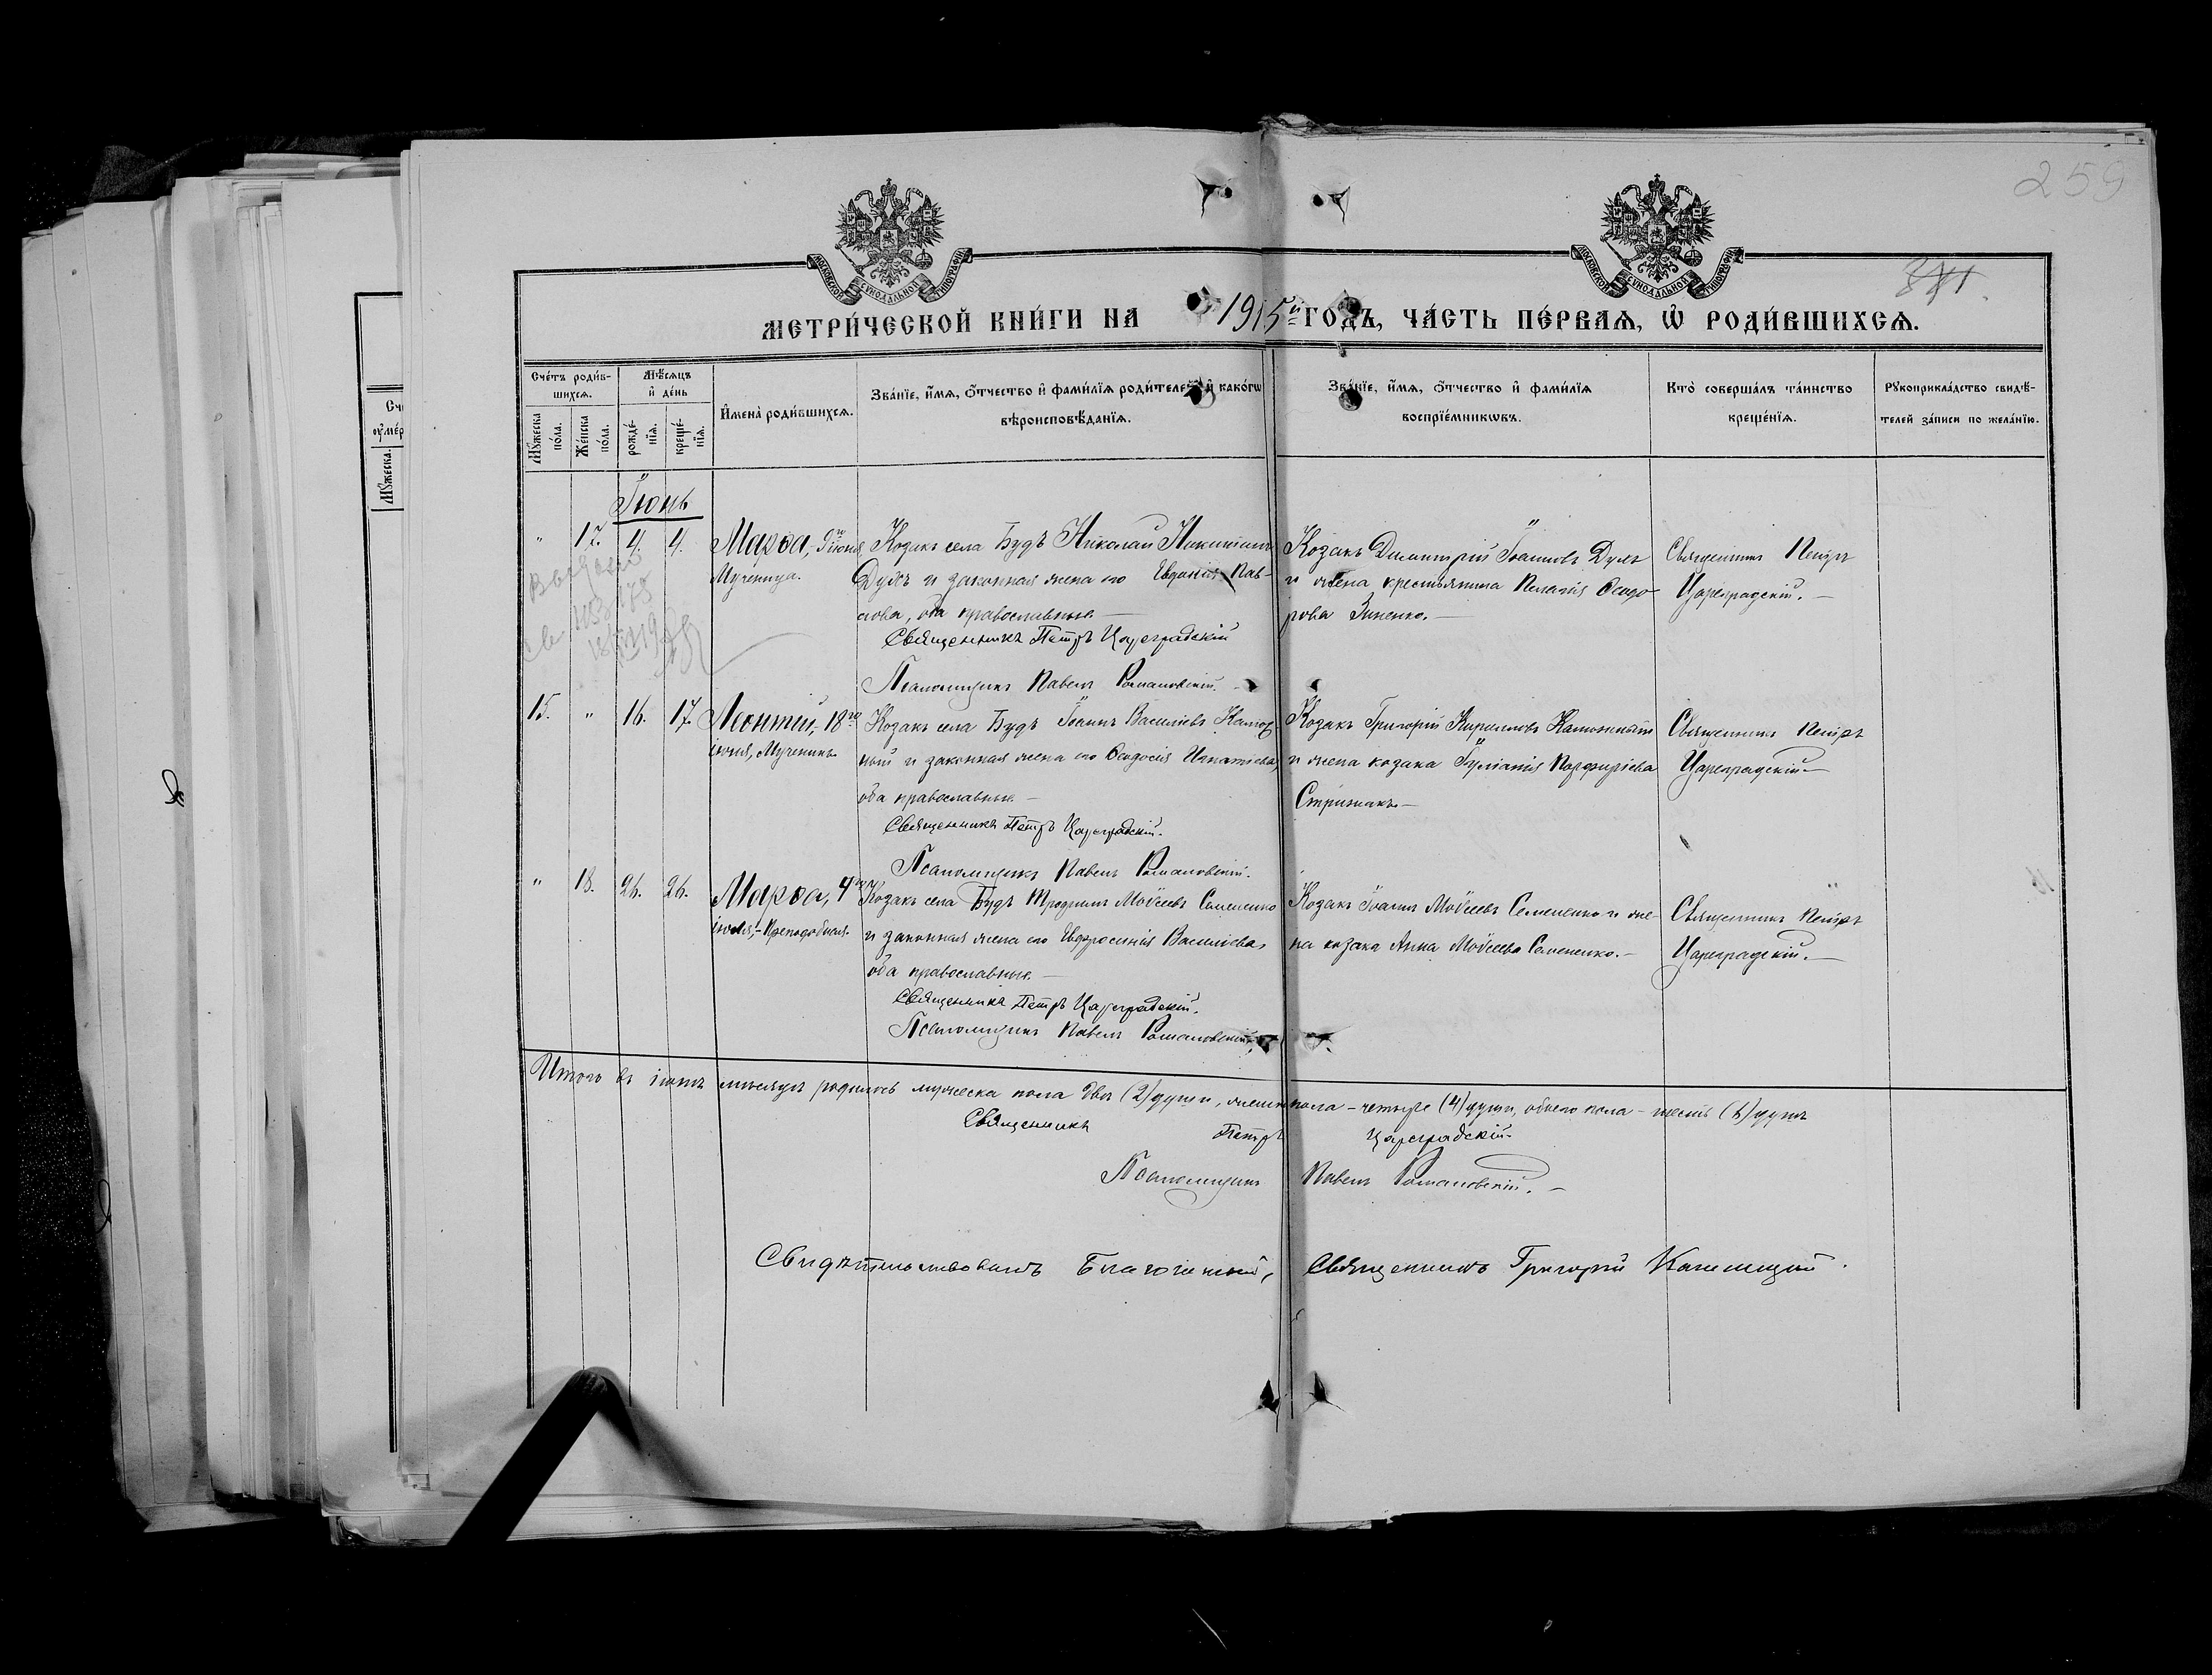 259
МОСКОВСКОЙ СѴНОДАЛЬНОЙ ТИПОГРАФІИ
МОСКОВСКОЙ СѴНОДАЛЬНОЙ ТИПОГРАФІИ
МЕТРИ́ЧЕСКОЙ КНИ́ГИ НА 1915й ГОДЪ, ЧА́СТЬ ПЕ́РВАѦ, Ѡ҆ РОДИ́ВШИХСѦ.
Сче́тъ роди́в-
шихсѧ.
Мѣ́сѧцъ
и҆ де́нь
Мꙋ́жеска
по́ла.
Же́нска
по́ла.
рожде́-
нїѧ.
креще́-
нїѧ.
И҆мена̀ роди́вшихсѧ.
Зва́нїе, и҆́мѧ, ѻ҆́тчество и҆ фами́лїѧ роди́телей и҆ како́гѡ
вѣроисповѣ́данїѧ.
Зва́нїе, и҆́мѧ, ѻ҆́тчество и҆ фами́лїѧ
воспрїе́мникѡвъ.
Кто̀ соверша́лъ та́инство
креще́нїѧ.
Рꙋкоприкла́дство свидѣ́-
телей за́писи по жела́нїю.
Мꙋ́жеска.
Іюнь
" 17. 4. 4. Марѳа, 9го іюня, Мученица.
Козакъ села Будъ Николай Никитинъ
Дуля и законная жена его Евдокія Пав-
лова, оба православные. —
Священникъ Петръ Цареградскій
Псаломщикъ Павелъ Романовскій. —
Козакъ Димитрій Іоанновъ Дуля
и жена крестьянина Пелагія Ѳеодо-
рова Зиненко. —
Священникъ Петръ
Цареградскій. —
15. " 16. 17. Леонтій, 18го
іюня, Мученикъ.
Козакъ села Будъ Іоаннъ Васильевъ Калюж-
ный и законная жена его Ѳеодосія Игнатіева,
оба православные. —
Священникъ Петръ Цареградскій.
Псаломщикъ Павелъ Романовскій.
Козакъ Григорій Кирилловъ Калюжный
и жена козака Іуліанія Порфиріева
Стрижакъ. —
Священникъ Петръ
Цареградскій —
" 18. 26. 26. Марѳа, 4го
іюля, - Преподобная.
Козакъ села Будъ Трофимъ Моѵсеевъ Семененко
и законная жена его Евфросинія Васильева,
оба православные. —
Священникъ Петръ Цареградскій.
Псаломщикъ Павелъ Романовскій.
Козакъ Іоаннъ Моѵсеевъ Семененко и же-
на козака Анна Моѵсеева Семененко. —
Священникъ Петръ
Цареградскій. —
Итого въ іюнѣ мѣсяцѣ родилось мужеска пола двѣ (2) души, женска пола – четыре (4) души, обоего пола – шесть (6) душъ
Священникъ Петръ Цареградскій.
Псаломщикъ Павелъ Романовскій. —
Свидѣтельствовалъ Благочинный, Священникъ Григорій